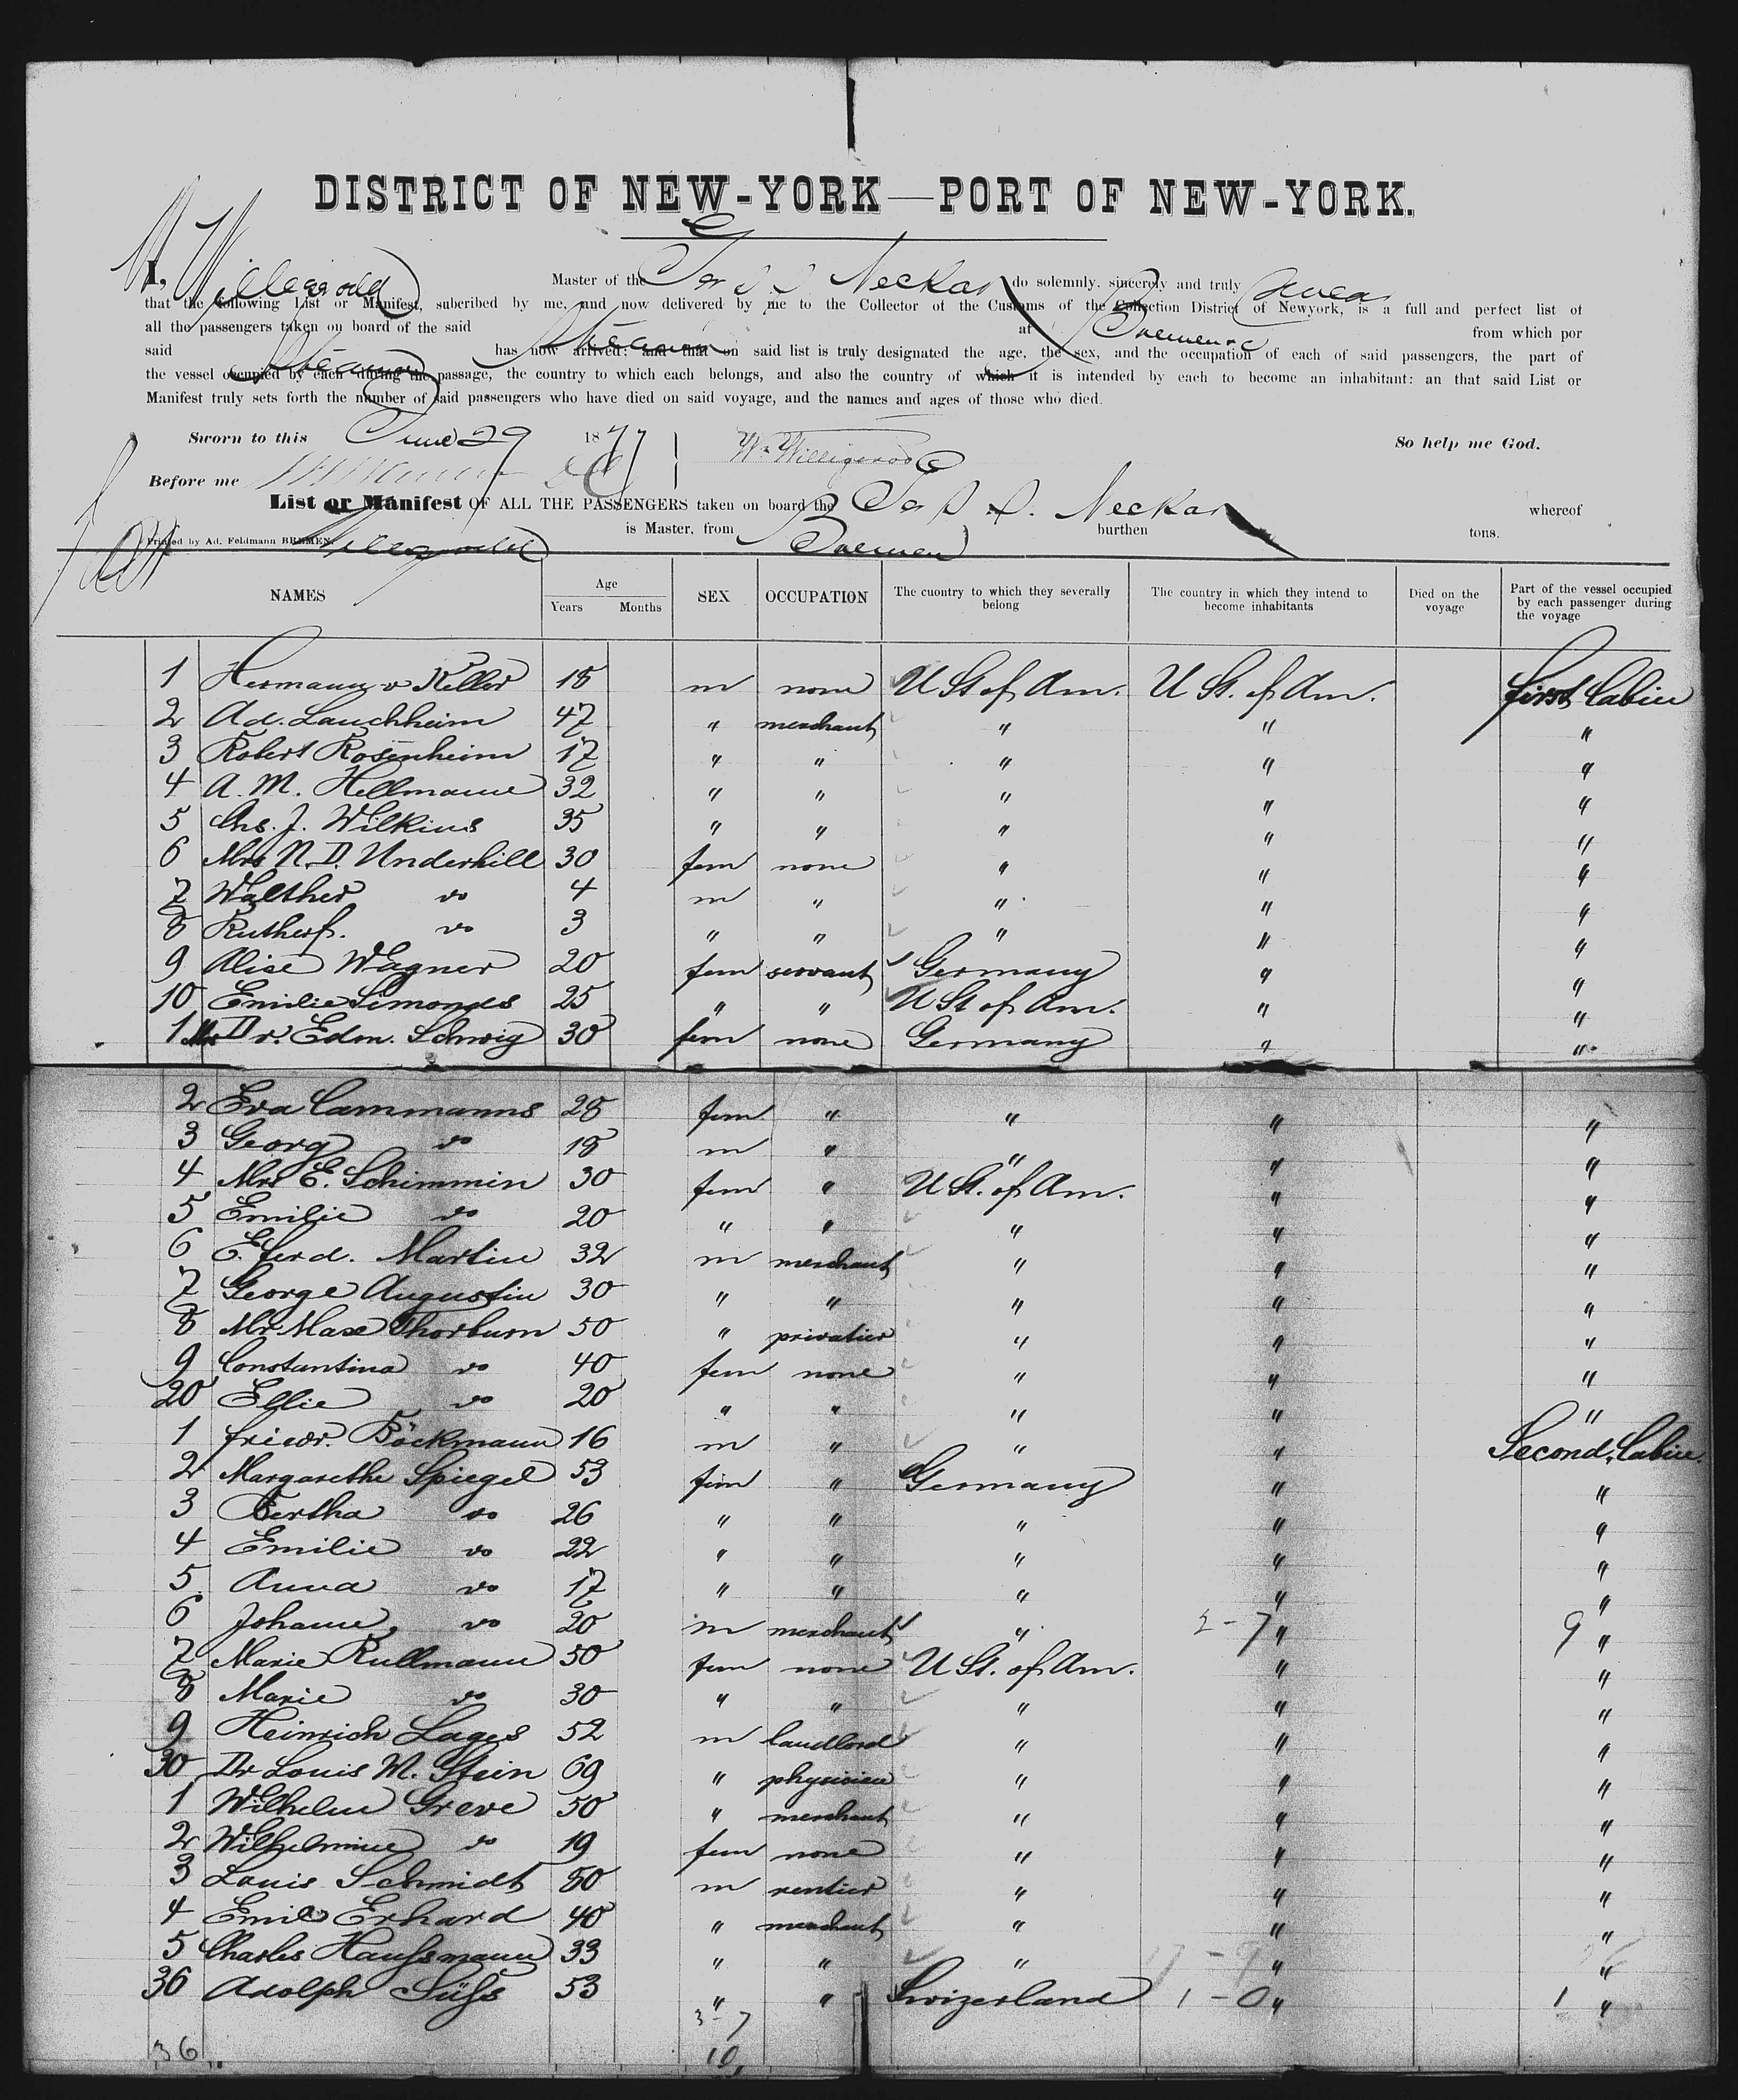 DISTRICT OF NEW-YORK—PORT OF NEW-YORK.
I, W Willigerod Master of the Ger S S Neckar do solemnly, sincerely and truly swear
that the following List or Manifest, subcribed by me, and now delivered by me to the Collector of the Customs of the Collection District of Newyork, is a full and perfect list of
all the passengers taken on board of the said Steamer at Bremen from which por
said Steamer has now arrived; and that on said list is truly designated the age, the sex, and the occupation of each of said passengers, the part of
the vessel occupied by each during the passage, the country to which each belongs, and also the country of which it is intended by each to become an inhabitant: an that said List or
Manifest truly sets forth the number of said passengers who have died on said voyage, and the names and ages of those who died.
Sworn to this June 29 1877 Wm Willigerod So help me God.
Before me
List or Manifest OF ALL THE PASSENGERS taken on board the Ger S. S. Neckar whereof
Willigerod is Master, from Bremen burthen tons.
Printed by Ad. Feldmann BREMEN.
NAMES Age Years Months SEX OCCUPATION The cuontry to which they severally belong The country in which they intend to become inhabitants Died on the voyage Part of the vessel occupied by each passenger during the voyage
1 Hermann v Keller 18 m none U St of Am. U St. of Am. first Cabin
2 Ad. Lauchheim 47 " merchant " " "
3 Robert Rosenheim 17 " " " " "
4 A. M. Hellmann 32 " " " " "
5 Chs. J. Wilkins 35 " " " " "
6 Mrs N. D. Underhill 30 fem none " " "
7 Walther do 4 m " " " "
8 Rutherf. do 3 " " " " "
9 Alise Wagner 20 fem servant Germany " "
10 Emilie Simonds 25 " " U St of Am. " "
1 Mrs Dr. Edm. Schwig 30 fem none Germany " "
2 Eva Cammanns 28 fem " " " "
3 Georg do 18 m " " " "
4 Mrs E. Schimmin 30 fem " U St. of Am. " "
5 Emilie do 20 " " " " "
6 E. ferd. Martin 32 m merchant " " "
7 George Augustin 30 " " " " "
8 Mr Max Thorburn 50 " privatier " " "
9 Constantina do 40 fem none " " "
20 Ellie do 20 " " " " "
1 friedr. Böckmann 16 m " " " Second Cabin.
2 Margarethe Spiegel 53 fem " Germany " "
3 Bertha do 26 " " " " "
4 Emilie do 22 " " " " "
5 Anna do 17 " " " " "
6 Johann do 20 m merchant " 2-7 " 9 "
7 Marie Kullmann 50 fem none U St. of Am. " "
8 Marie do 30 " " " " "
9 Heinrich Lages 52 m landlord " " "
30 Dr Louis M. Stein 69 " physician " " "
1 Wilhelm Greve 50 " merchant " " "
2 Wilhelmine do 19 fem none " " "
3 Louis Schmidt 50 m rentier " " "
4 Emil Erhard 40 " merchant " " "
5 Charles Haußmann 33 " " " " "
36 Adolph Süßs 53 " " Swizerland 1-0 " 1 "
36 3-7
10